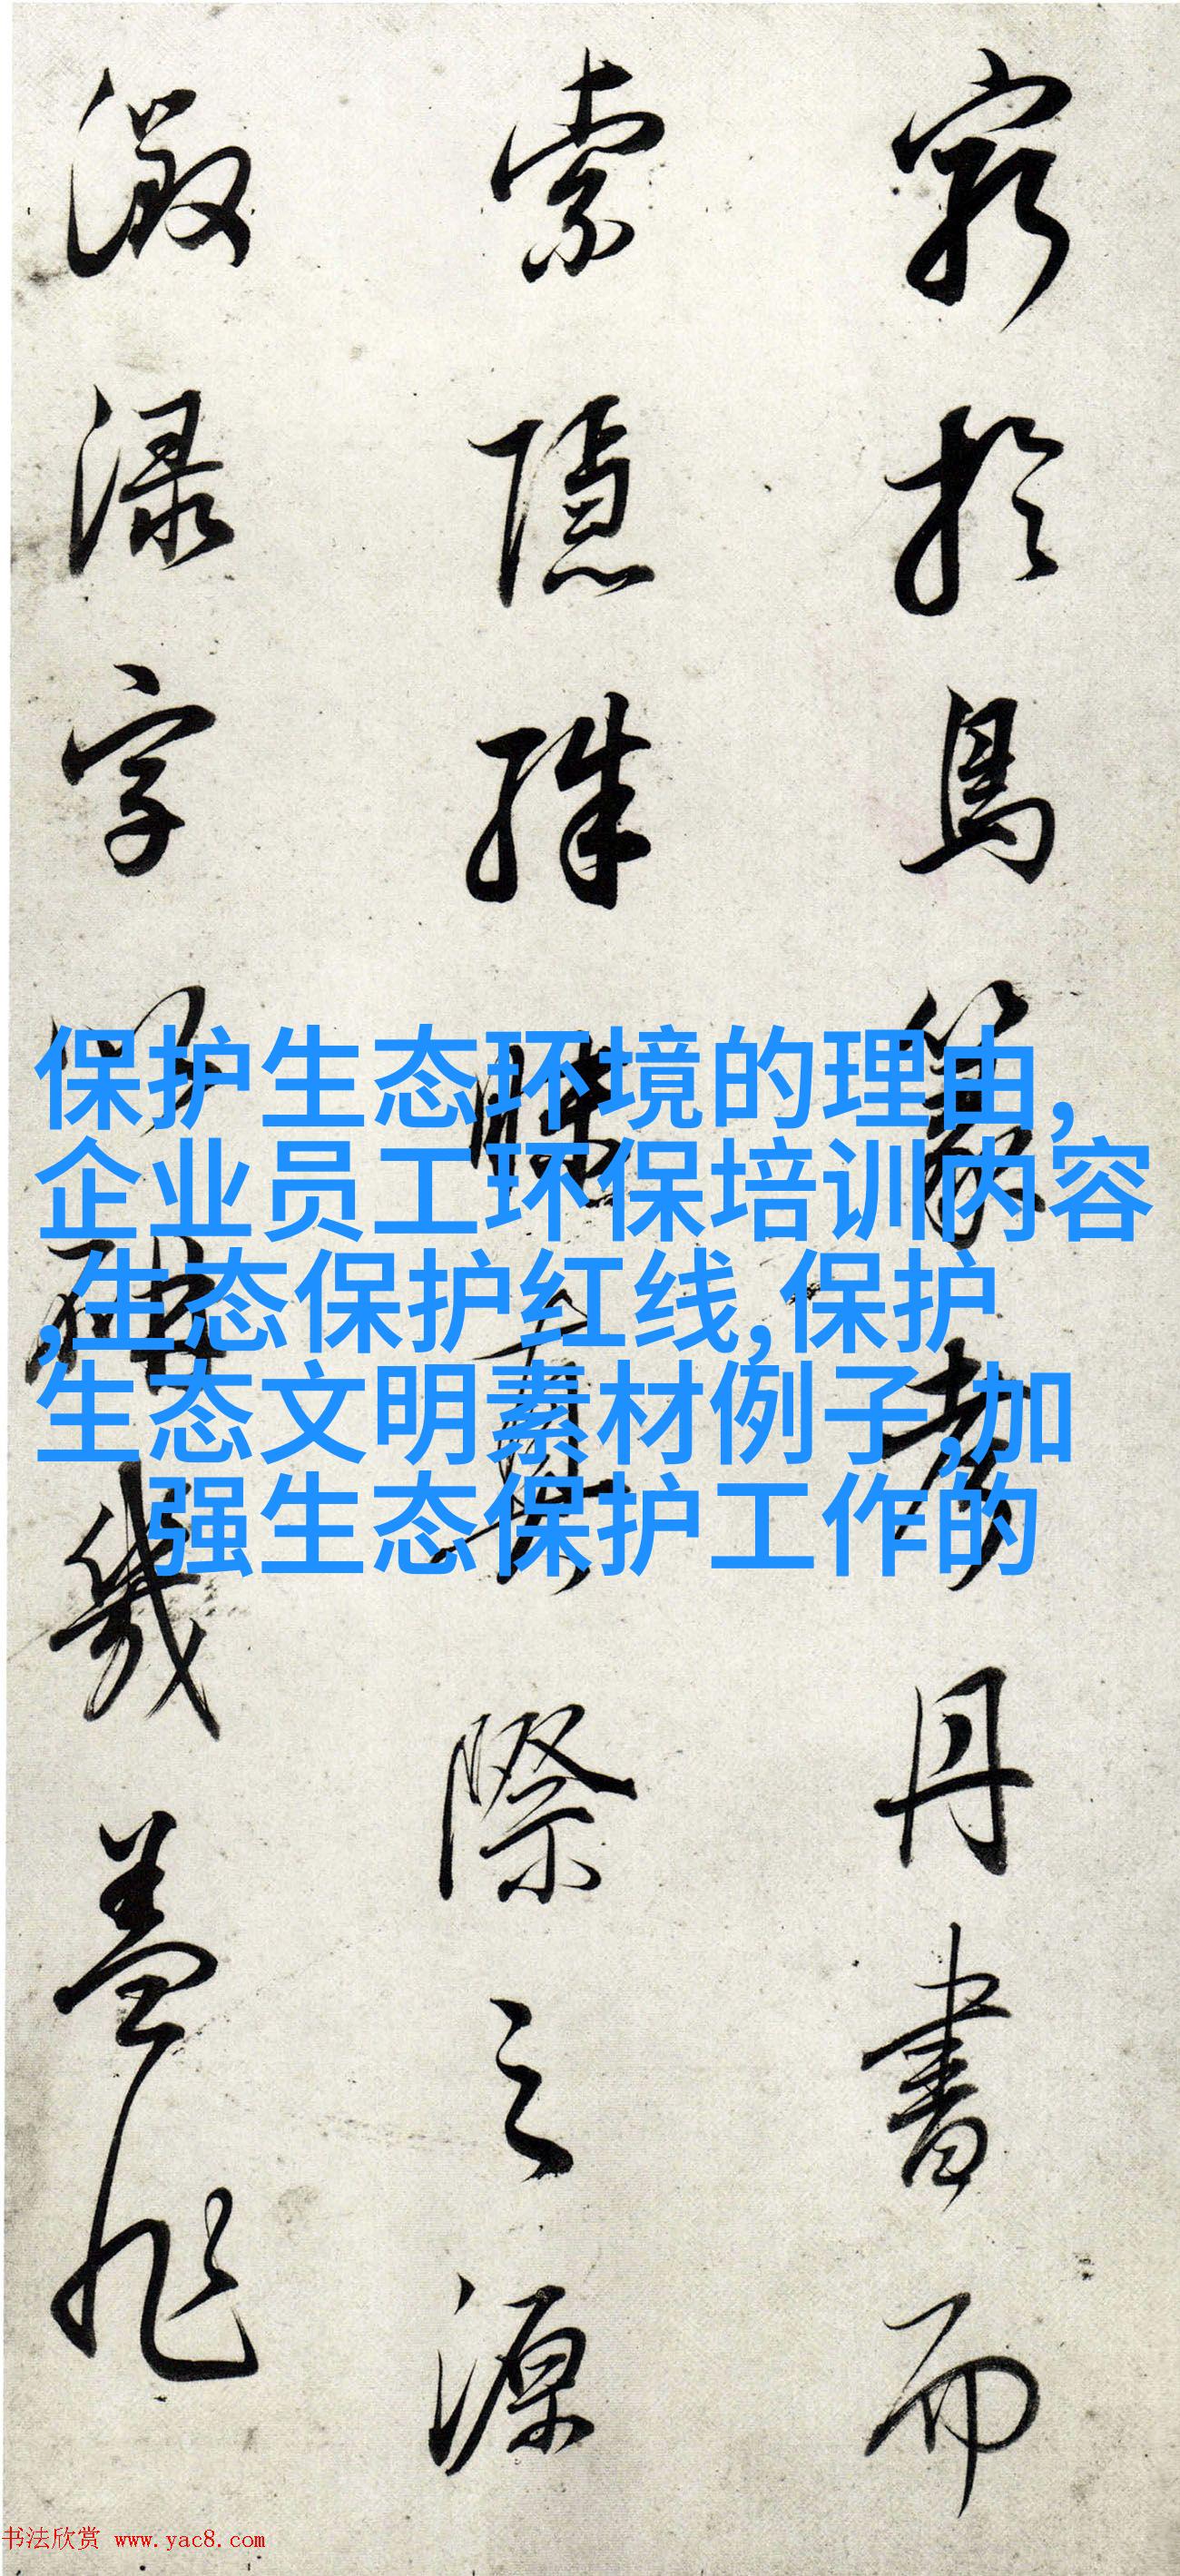 窮於鳥篆考丹書而
索隱殊真際之源
字幾盖非
保护生态环境的理由,
企业员工环保培训内容
,生态保护红线,保护
生态文明素材例子,加
强生态保护工作的
书法欣赏 www.yac8.com